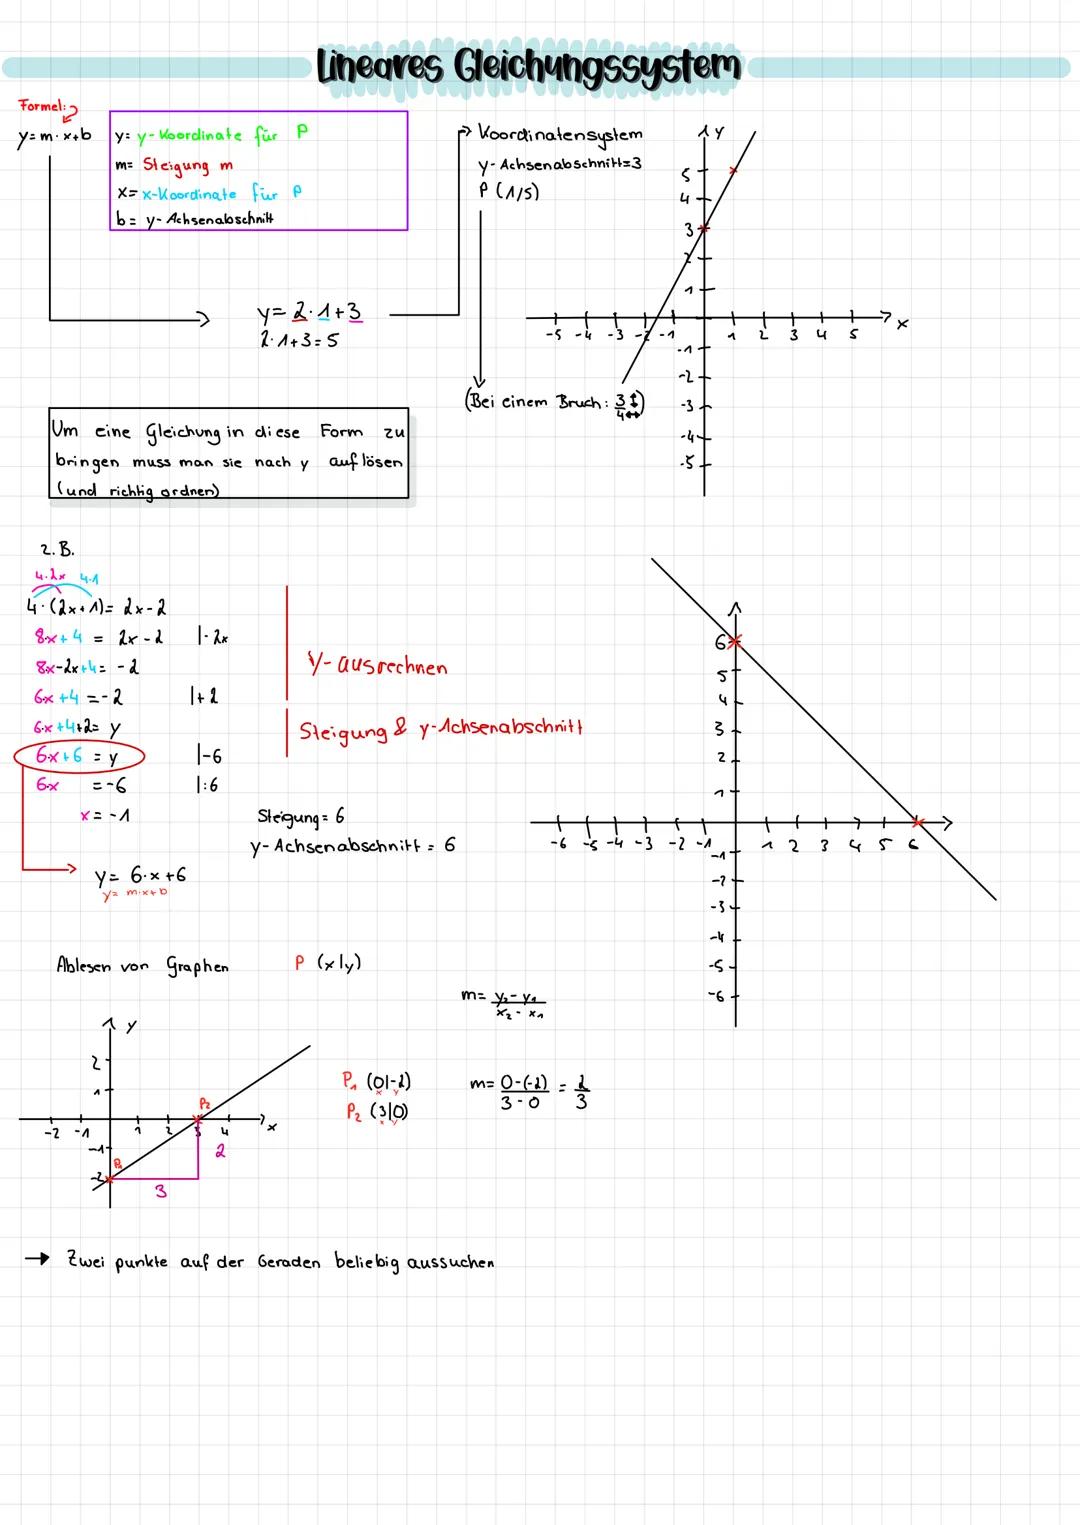 Lineares Gleichungssystem
Formel:
y=m·x+b
y= y-Koordinate für P
m= Steigung m
x= x-Koordinate für P
b= y-Achsenabschnitt
Koordinatensystem
y-Achsenabschnitt=3
P (1/5)
y= 2·1+3
2·1+3=5
(Bei einem Bruch: 3/4)
y
5
4
3
2
1
-5 -4 -3 -2 -1 1 2 3 4 5 x
-1
-2
-3
-4
-5
Um eine Gleichung in diese Form zu
bringen muss man sie nach y auflösen
(und richtig ordnen)
z.B.
4·2x 4·1
4·(2x+1)= 2x-2
8x+4 = 2x-2 |-2x
8x-2x+4= -2
6x+4 =-2 |+2
6x+4+2= y
6x+6 = y |-6
6x =-6 |:6
x= -1
y= 6·x+6
y= m·x+b
Y-ausrechnen
Steigung & y-Achsenabschnitt
Steigung= 6
y-Achsenabschnitt = 6
6
5
4
3
2
1
-6 -5 -4 -3 -2 -1 1 2 3 4 5 6
-1
-2
-3
-4
-5
-6
Ablesen von Graphen P (x|y)
m= y₂-y₁/x₂-x₁
y
2
1
-2 -1 1 2 3 4 x
-1
-2
P₁
P₂
2
3
P₁ (0|-2)
x y
P₂ (3|0)
x y
m= 0-(-2)/3-0 = 2/3
→ Zwei punkte auf der Geraden beliebig aussuchen